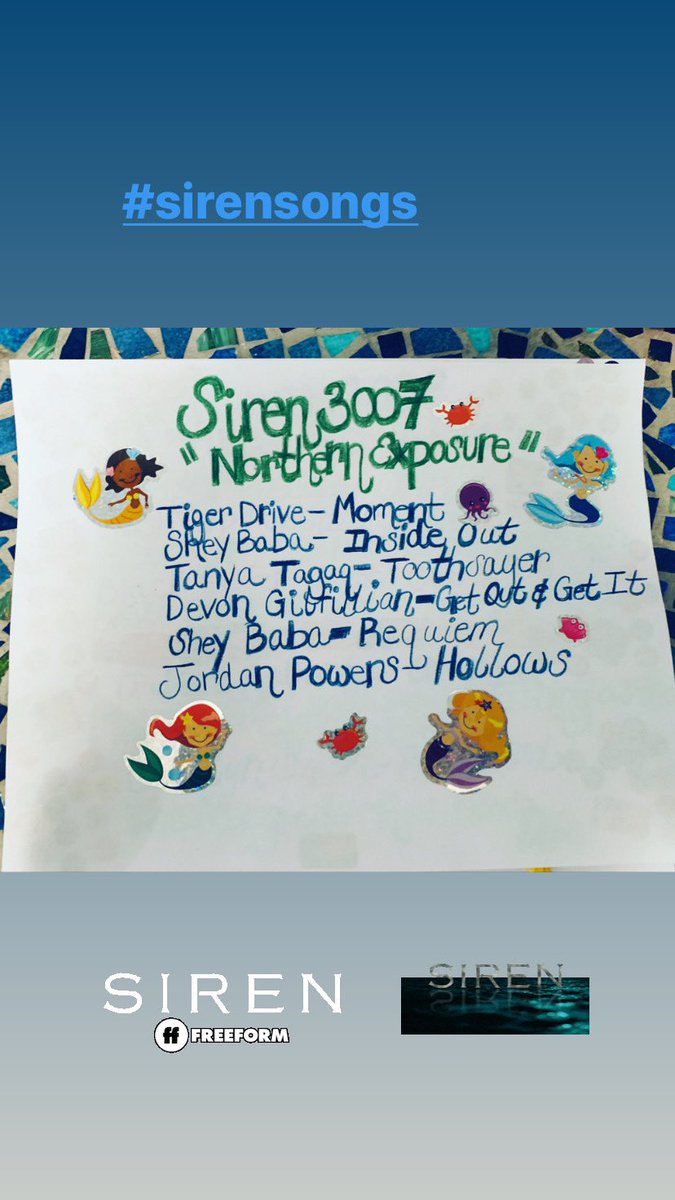 #sirensongs
Siren 3007
"Northern Exposure"
Tiger Drive - Moment
Shey Baba - Inside Out
Tanya Tagaq - Toothsayer
Devon Gilfillian - Get Out & Get It
Shey Baba - Requiem
Jordan Powers - Hollows
SIREN
SIREN
ff FREEFORM